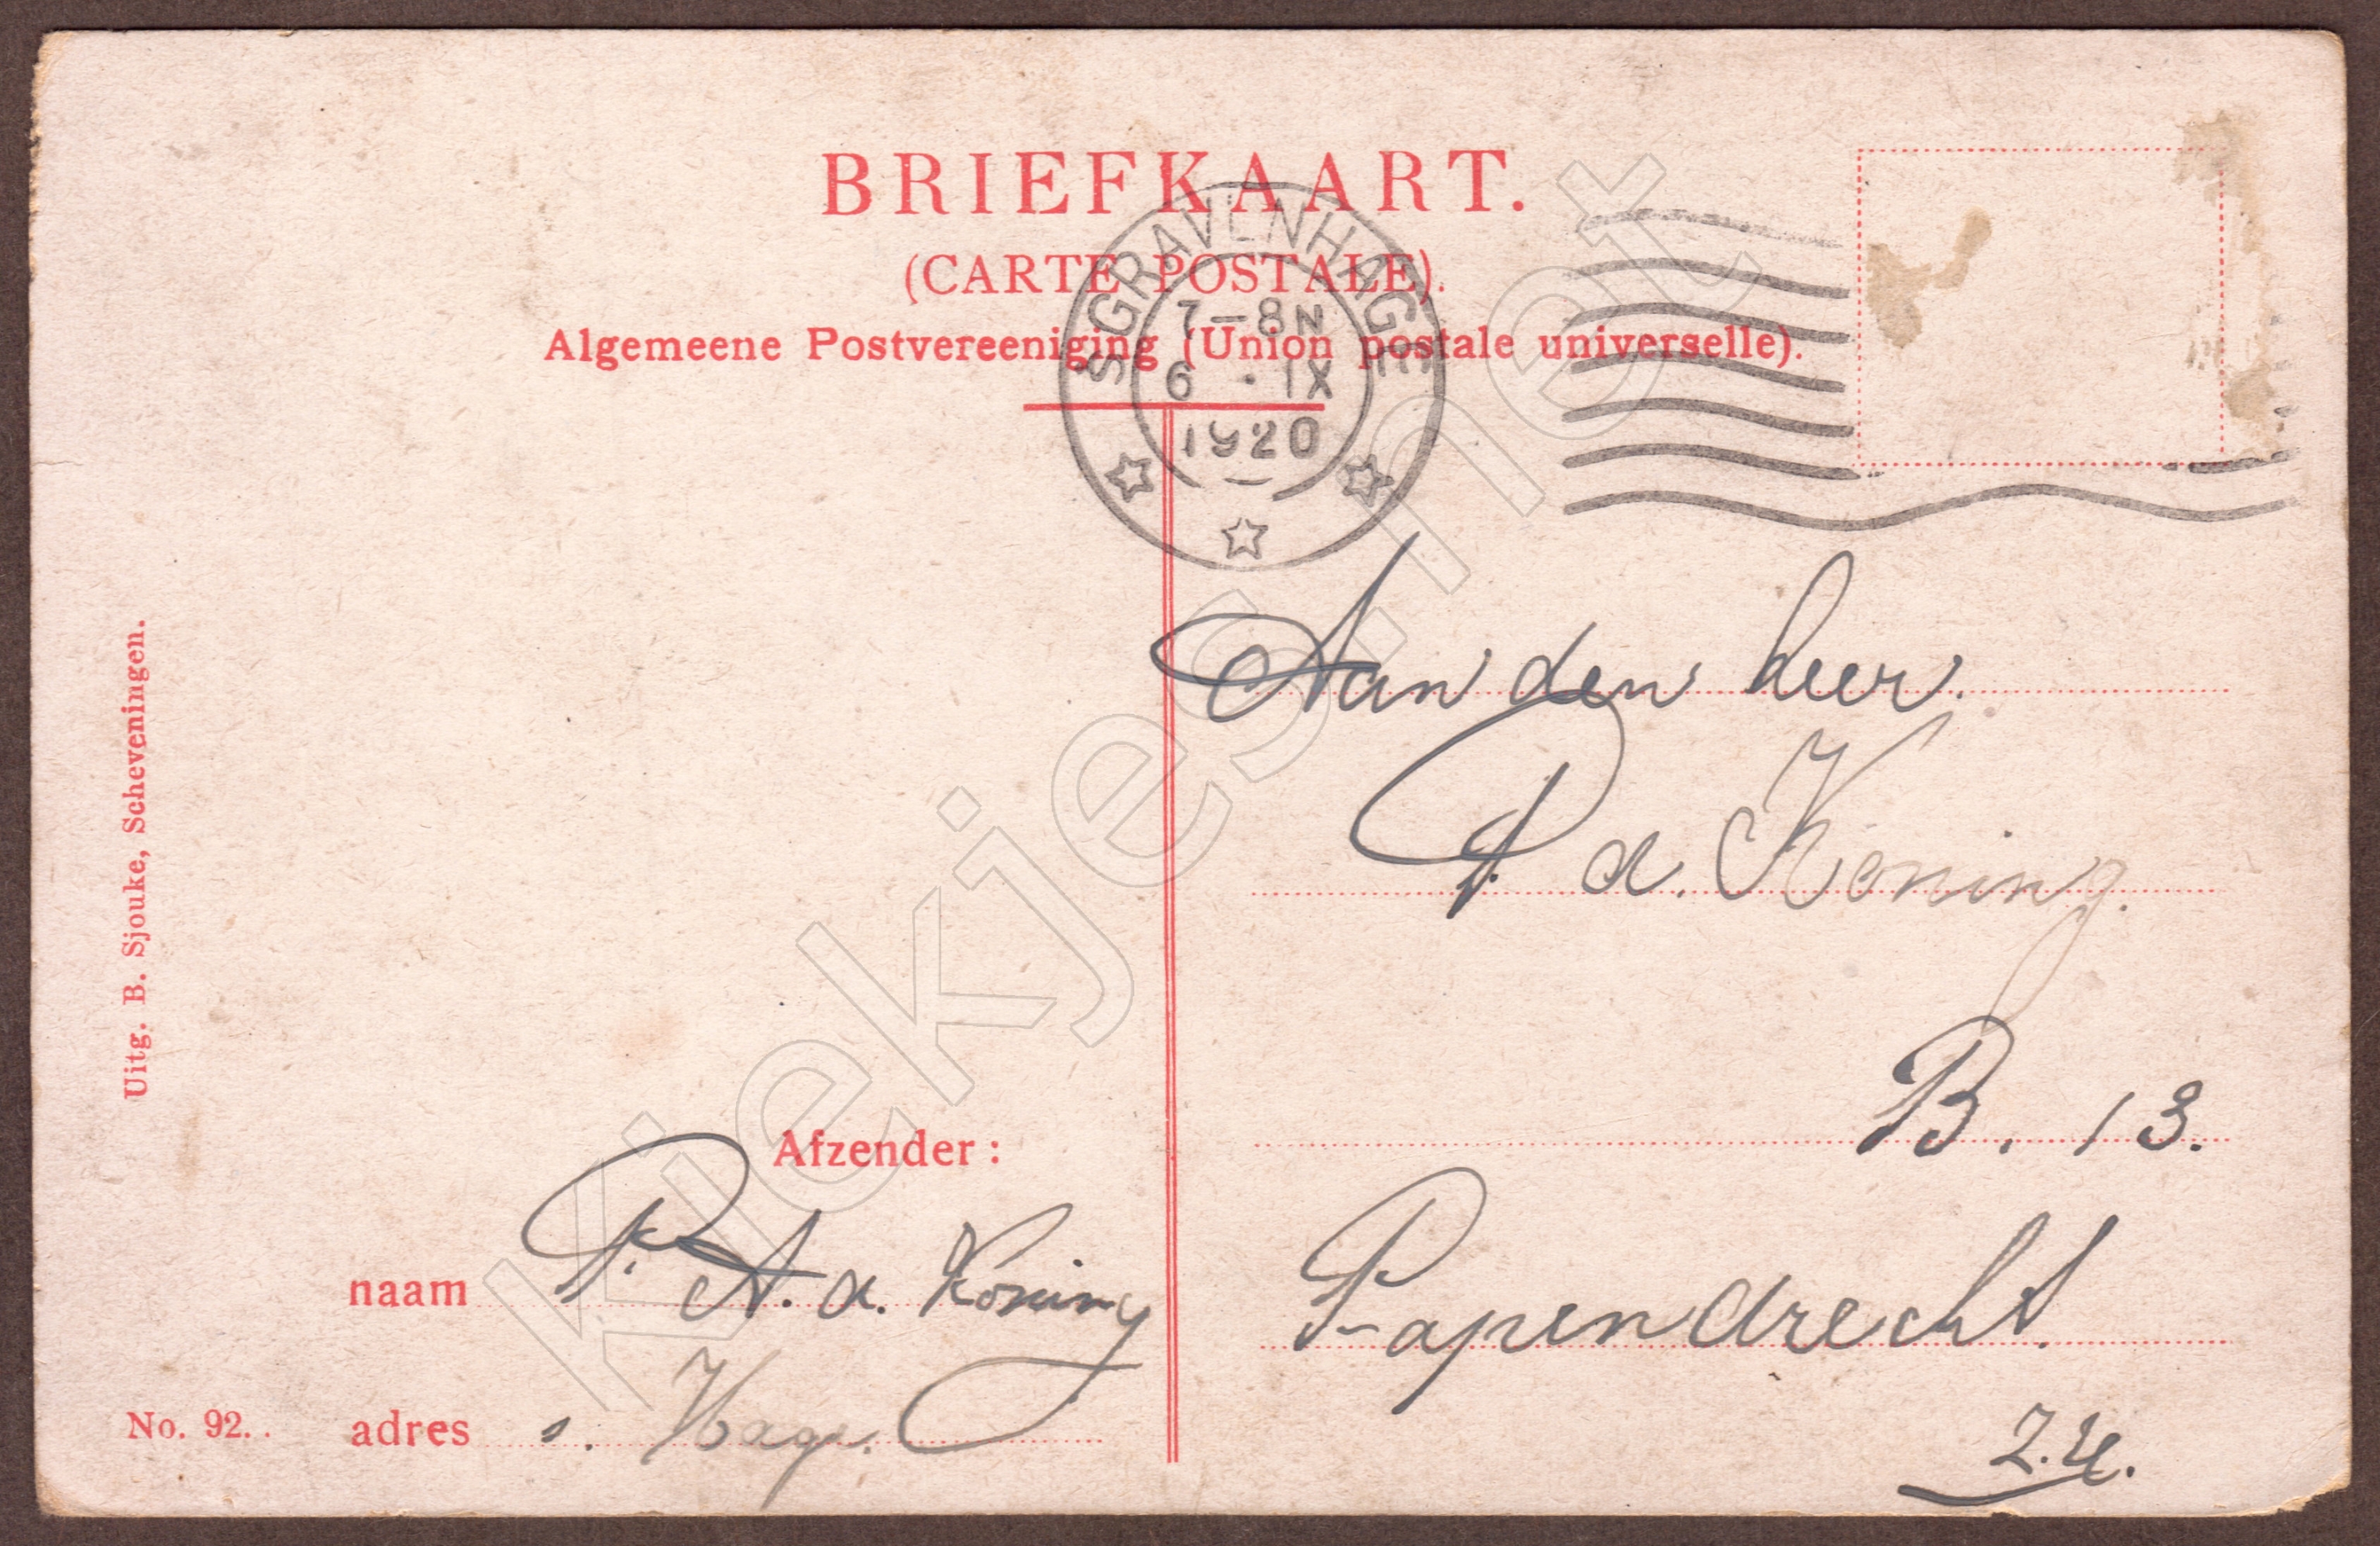 BRIEFKAART.
(CARTE POSTALE).
Algemeene Postvereeniging (Union postale universelle).
'S GRAVENHAGE
7-8N
6 · IX
1920
Aan den heer
P. d. Koning.
B. 13.
Papendrecht.
Z.H.
Afzender:
naam P. A. d. Koning
adres s. Hage.
No. 92..
Uitg. B. Sjouke, Scheveningen.
Kiekjes.net